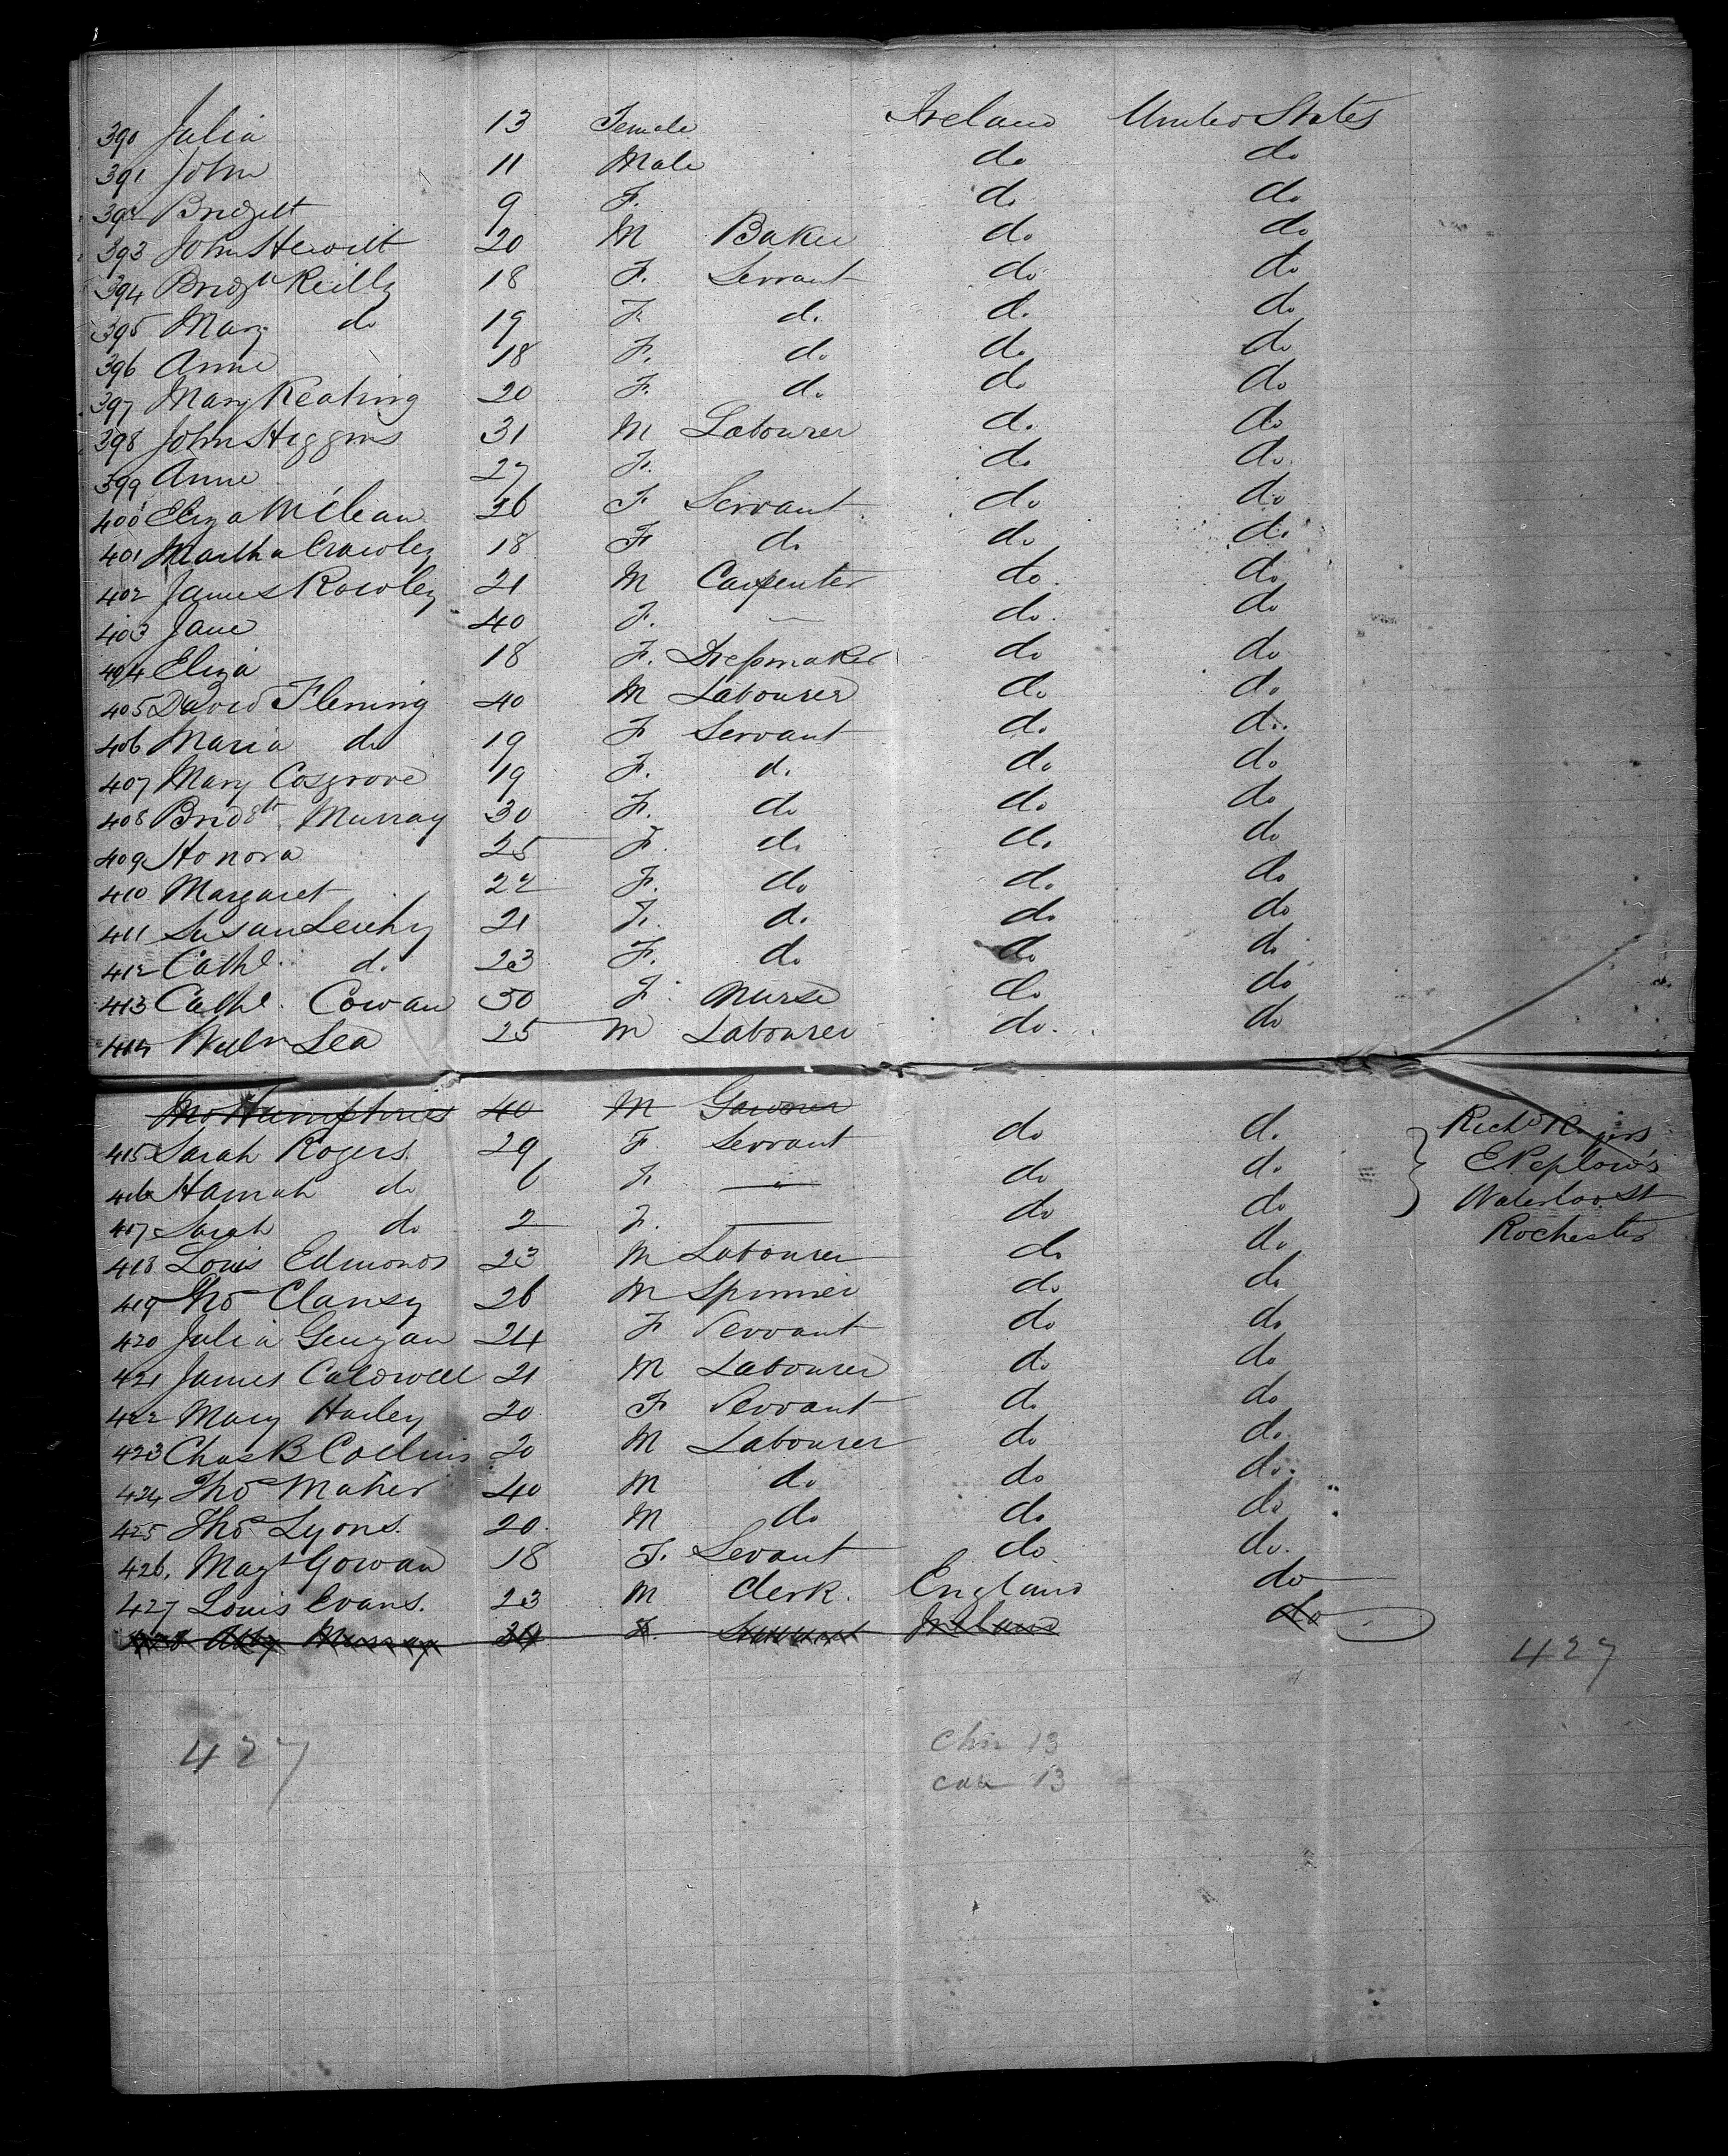 390 Julia 13 Female Ireland United States
391 John 11 Male do do
392 Bridgett 9 F. do do
393 John Hewitt 20 M Baker do do
394 Bridgt Reilly 18 F. Servant do do
395 Mary do 19 F. do do do
396 Anne 18 F. do do do
397 Mary Keating 20 F. do do do
398 John Higgins 31 M Labourer do do
399 Anne 27 F. do do
400 Eliza McClean 36 F Servant do do
401 Martha Crawley 18 F do do do
402 James Rowley 21 M Carpenter do do
403 Jane 40 F. — do do
404 Eliza 18 F. Dressmaker do do
405 David Fleming 40 M Labourer do do
406 Maria do 19 F Servant do do
407 Mary Cosgrove 19 F. do do do
408 Bridgt Murray 30 F. do do do
409 Honora 25 F. do do do
410 Margaret 22 F. do do do
411 Susan Leichy 21 F. do do do
412 Cathe. do 23 F. do do do
413 Cathe. Cowan 50 F. Nurse do do
414 Willm Lea 25 M Labourer do do
Jno Humphries 40 M
415 Sarah Rogers 29 F Servant do do } Richd Rogers
416 Hannah do 6 F. — do do E Peplow's
417 Sarah do 2 F. — do do Waterloo St
418 Louis Edmonds 23 M Labourer do do Rochester
419 Thos Clansy 26 M Spinner do do
420 Julia 24 F Servant do do
421 James Caldwell 21 M Labourer do do
422 Mary Harley 20 F Servant do do
423 Chas B Collins 20 M Labourer do do
424 Thos Maher 40 M do do do
425 Thos Lyons. 20 M do do do
426. Magt Gowan 18 F. Sevant do do
427 Louis Evans. 23 M Clerk. England do
428 Murray F. Servant Ireland do
427
427
13
13